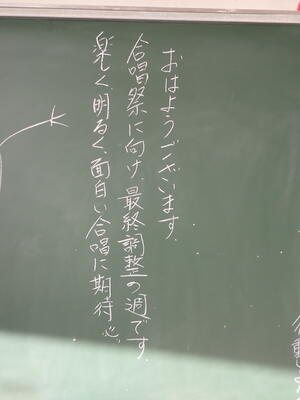 おはようございます。
合唱祭に向け、最終調整の週です。
楽しく、明るく、面白い合唱に期待